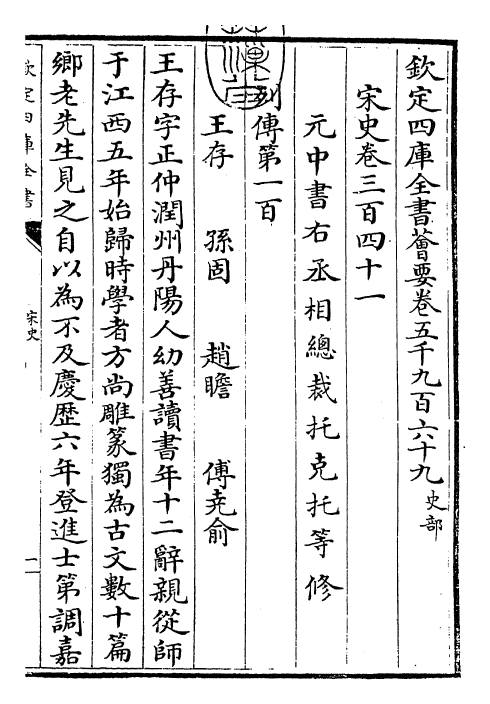 欽定四庫全書薈要卷五千九百六十九 史部
宋史卷三百四十一
元中書右丞相總裁托克托等修
列傳第一百
王存 孫固 趙瞻 傅堯俞
王存字正仲潤州丹陽人幼善讀書年十二辭親從師
于江西五年始歸時學者方尚雕篆獨為古文數十篇
鄉老先生見之自以為不及慶歴六年登進士第調嘉
欽定四庫全書
宋史
一